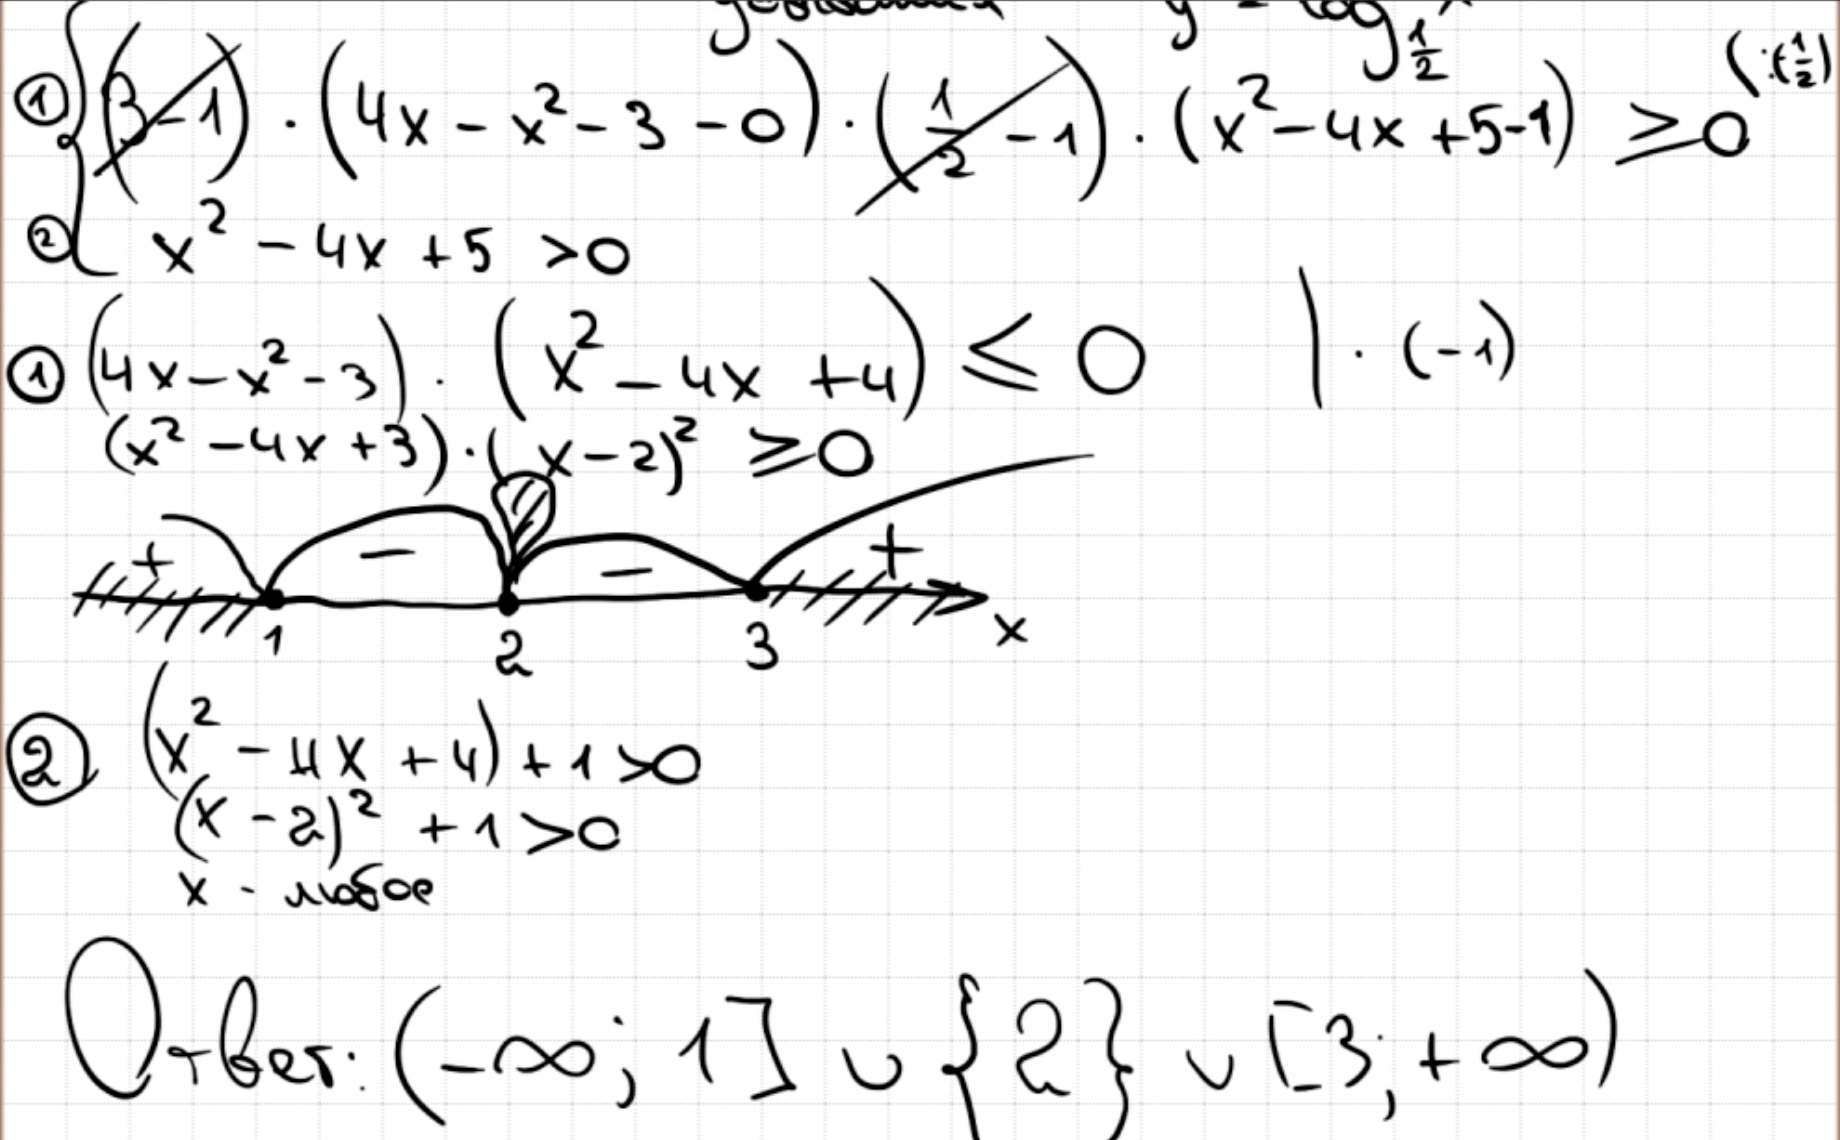 y = log_{1/2} x
① { (3-1) · (4x - x² - 3 - 0) · (1/2 - 1) · (x² - 4x + 5 - 1) ≥ 0 (:(1/2)
② x² - 4x + 5 > 0
① (4x - x² - 3) · (x² - 4x + 4) ≤ 0 | · (-1)
(x² - 4x + 3) · (x - 2)² ≥ 0
+ - - +
1 2 3 x
② (x² - 4x + 4) + 1 > 0
(x - 2)² + 1 > 0
x - любое
Ответ: (-∞; 1] ∪ {2} ∪ [3; +∞)